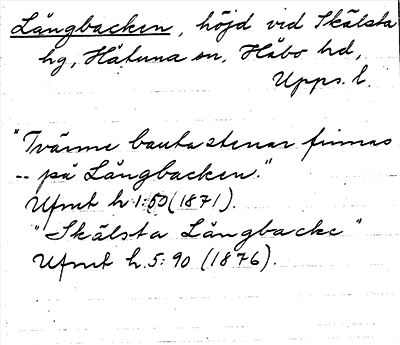 Långbacken, höjd vid Skälsta
hg, Håtuna sn, Håbo hd,
Upps. l.
"Tvänne bautastenar finnas
-- på Långbacken."
Ufmt h 1:50 (1871).
"Skälsta Långbacke"
Ufmt h. 5:90 (1876).